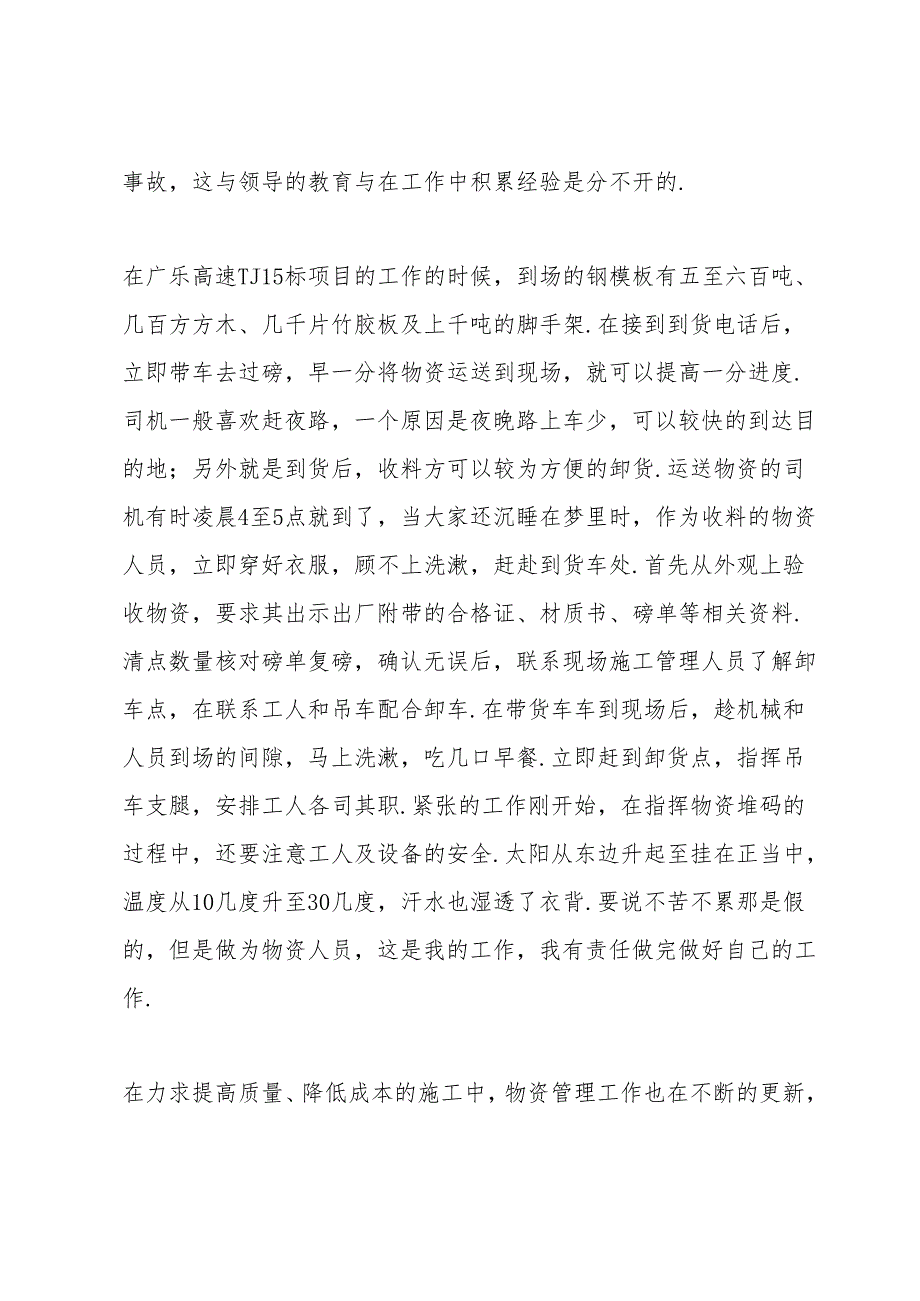 事故，这与领导的教育与在工作中积累经验是分不开的.
在广乐高速TJ15标项目的工作的时候，到场的钢模板有五至六百吨、
几百方方木、几千片竹胶板及上千吨的脚手架.在接到到货电话后，
立即带车去过磅，早一分将物资运送到现场，就可以提高一分进度.
司机一般喜欢赶夜路，一个原因是夜晚路上车少，可以较快的到达目
的地；另外就是到货后，收料方可以较为方便的卸货.运送物资的司
机有时凌晨4至5点就到了，当大家还沉睡在梦里时，作为收料的物资
人员，立即穿好衣服，顾不上洗漱，赶赴到货车处.首先从外观上验
收物资，要求其出示出厂附带的合格证、材质书、磅单等相关资料.
清点数量核对磅单复磅，确认无误后，联系现场施工管理人员了解卸
车点，在联系工人和吊车配合卸车.在带货车车到现场后，趁机械和
人员到场的间隙，马上洗漱，吃几口早餐.立即赶到卸货点，指挥吊
车支腿，安排工人各司其职.紧张的工作刚开始，在指挥物资堆码的
过程中，还要注意工人及设备的安全.太阳从东边升起至挂在正当中，
温度从10几度升至30几度，汗水也湿透了衣背.要说不苦不累那是假
的，但是做为物资人员，这是我的工作，我有责任做完做好自己的工
作.
在力求提高质量、降低成本的施工中，物资管理工作也在不断的更新，